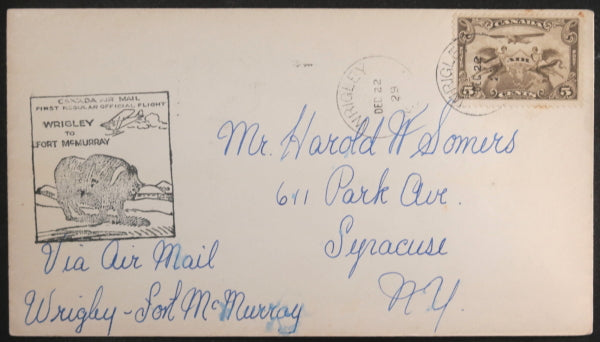 CANADA AIR MAIL
FIRST REGULAR OFFICIAL FLIGHT
WRIGLEY
TO
FORT McMURRAY
WRIGLEY
DEC 22
29
WRIGL
DEC 22
CANADA
AIR
5 CENTS 5
Mr. Harold W Somers
611 Park Ave.
Syracuse
N.Y.
Via Air Mail
Wrigby-Fort McMurray